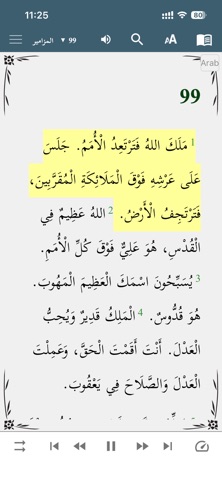 11:25
80
المزامير ▼ 99
AA
Arab
99
1 مَلَكَ اللهُ فَتَرْتَعِدُ الْأُمَمُ. جَلَسَ
عَلَى عَرْشِهِ فَوْقَ الْمَلَائِكَةِ الْمُقَرَّبِينَ،
فَتَرْتَجِفُ الْأَرْضُ. 2 اللهُ عَظِيمٌ فِي
الْقُدْسِ، هُوَ عَلِيٌّ فَوْقَ كُلِّ الْأُمَمِ.
3 يُسَبِّحُونَ اسْمَكَ الْعَظِيمَ الْمَهُوبَ.
هُوَ قُدُّوسٌ. 4 الْمَلِكُ قَدِيرٌ وَيُحِبُّ
الْعَدْلَ. أَنْتَ أَقَمْتَ الْحَقَّ، وَعَمِلْتَ
الْعَدْلَ وَالصَّلَاحَ فِي يَعْقُوبَ.